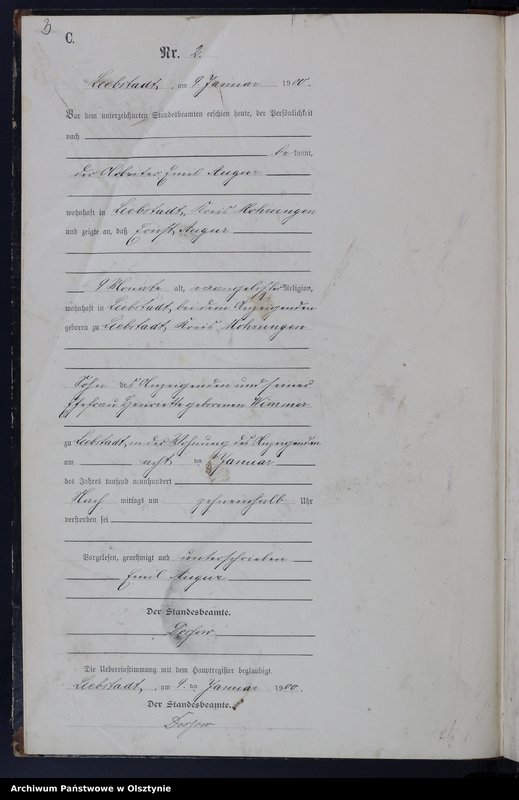 3
C.
Nr. 2.
Liebstadt, am 9 Januar 1900.
Vor dem unterzeichneten Standesbeamten erschien heute, der Persönlichkeit
nach
be kannt,
der Arbeiter Emil Augur
wohnhaft in Liebstadt, Kreis Mohrungen
und zeigte an, daß Ernst Augur
9 Monate alt, evangelischer Religion,
wohnhaft in Liebstadt, bei dem Anzeigenden
geboren zu Liebstadt, Kreis Mohrungen
Sohn des Anzeigenden und seiner
Ehefrau Henriette geborenen
zu Liebstadt, in der Wohnung des Anzeigenden
am acht ten Januar
des Jahres tausend neunhundert
Nach mittags um zehneinhalb Uhr
verstorben sei
Vorgelesen, genehmigt und unterschrieben
Emil Augur
Der Standesbeamte.
Die Uebereinstimmung mit dem Hauptregister beglaubigt.
Liebstadt, am 9. ten Januar 1900.
Der Standesbeamte.
Archiwum Państwowe w Olsztynie